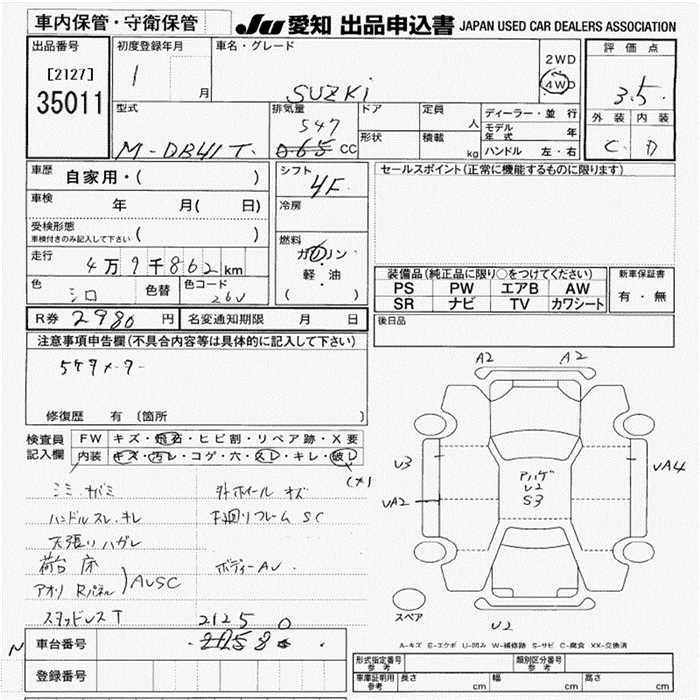 車内保管・守衛保管
JU 愛知 出品申込書 JAPAN USED CAR DEALERS ASSOCIATION
出品番号
[2127]
35011
初度登録年月
1
月
車名・グレード
SUZKi
2WD
4WD
評価点
3.5
外装 内装
C D
型式
M-DB41T.
排気量
547
065 cc
ドア
形状
定員
人
積載
kg
ディーラー・並行
モデル年式 年
ハンドル 左・右
車歴 自家用・( )
車検 年 月( 日)
受検形態
車検付きのみ記入して下さい ( )
走行 4万9千862km
色 シロ 色替 色コード 26U
シフト 4F
冷房
燃料
ガソリン・
軽・油
( )
セールスポイント(正常に機能するものに限ります)
装備品(純正品に限り○をつけてください)
PS PW エアB AW
SR ナビ TV カワシート
新車保証書
有・無
後日品
R券 2980円 名変通知期限 月 日
注意事項申告欄(不具合内容等は具体的に記入して下さい)
5ケタメーター
修復歴 有 〔箇所 〕
検査員記入欄
FW キズ・飛石・ヒビ割・リペア跡・X要
内装 キズ・汚レ・コゲ・穴・スレ・キレ・破レ
シミ.サバミ
ハンドルスレ.キレ
天張りハガレ
荷台 床
アオリ Rパネル )AUSC
スタッドレスT
外ホイール キズ
下回りフレーム SC
ボディーAU.
A2 A2
U3
UA2
UA4
アハゲ
U2
S3
U2
スペア
A-キズ E-エクボ U-凹み W-補修跡 S-サビ C-腐食 XX-交換済
車台番号
21250
登録番号
形式指定番号 参考
類別区分番号 参考
車庫証明用 参考
長さ cm
幅 cm
高さ cm